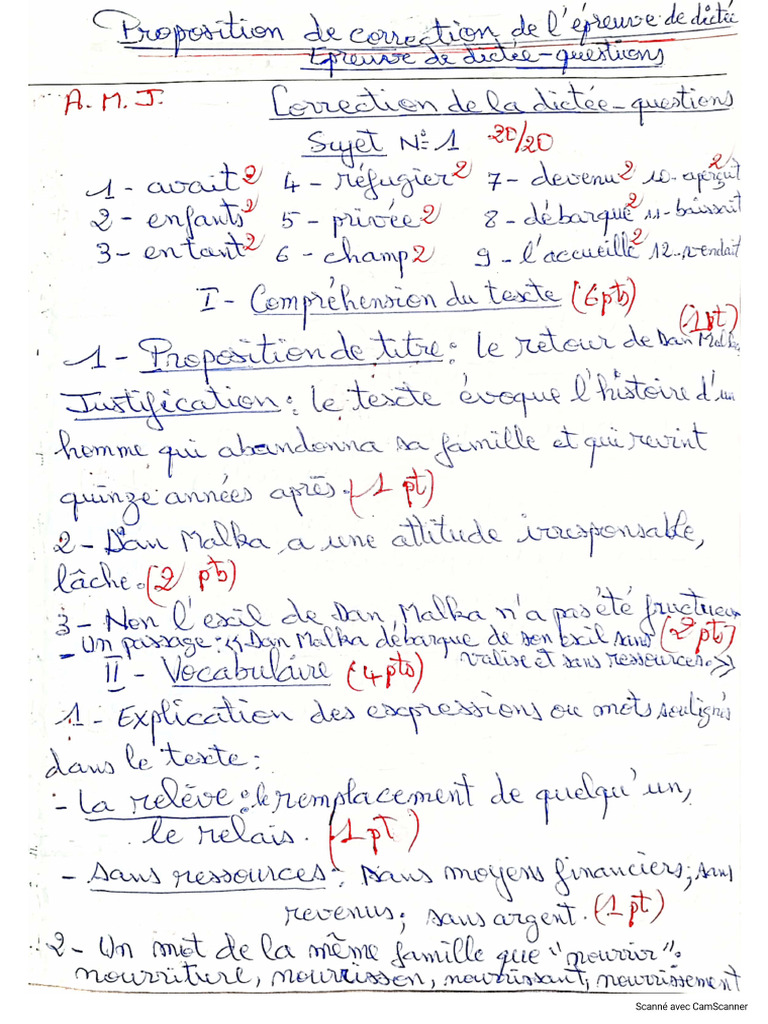 Proposition de correction de l'épreuve de dictée
Epreuve de dictée-questions
A.M.J. Correction de la dictée-questions
Sujet N°1 20/20
1- avait 2 4- réfugier 2 7- devenu 2 10- aperçut 2
2- enfants 2 5- privée 2 8- débarqué 2 11- baissait
3- entant 2 6- champ 2 9- l'accueille 2 12- vendait
I- Compréhension du texte (6pts)
1- Proposition de titre: le retour de Dan Malka (1pt)
Justification: le texte évoque l'histoire d'un
homme qui abandonna sa famille et qui revint
quinze années après. (1 pt)
2- Dan Malka a une attitude irresponsable,
lâche. (2 pts)
3- Non l'exil de Dan Malka n'a pas été fructueux
- Un passage: << Dan Malka débarque de son exil sans (2pts)
valise et sans ressources. >>
II- Vocabulaire (4pts)
1- Explication des expressions ou mots soulignés
dans le texte:
- La relève: le remplacement de quelqu'un,
le relais. (1 pt)
- sans ressources: sans moyens financiers; sans
revenus; sans argent. (1 pt)
2- Un mot de la même famille que "nourrir":
nourriture, nourrisson, nourrissant, nourrissement
Scanné avec CamScanner